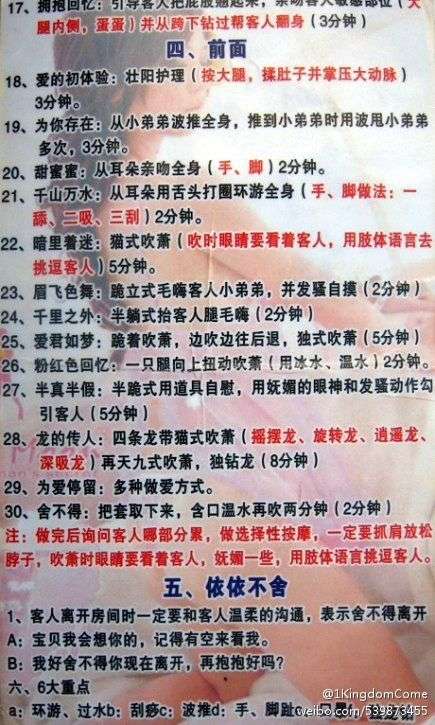 17、拥抱回忆：引导客人把屁股翘起来，亲吻客人敏感部位（大
腿内侧，蛋蛋）并从跨下钻过帮客人翻身（3分钟）
四、前面
18、爱的初体验：壮阳护理（按大腿，揉肚子并掌压大动脉）
3分钟。
19、为你存在：从小弟弟波推全身，推到小弟弟时用波甩小弟弟
多次，3分钟。
20、甜蜜蜜：从耳朵亲吻全身（手、脚）2分钟。
21、千山万水：从耳朵用舌头打圈环游全身（手、脚做法：一
舔、二吸、三刮）2分钟。
22、暗里着迷：猫式吹萧（吹时眼睛要看着客人，用肢体语言去
挑逗客人）5分钟。
23、眉飞色舞：跪立式毒嗨客人小弟弟，并发骚自摸（2分钟）
24、千里之外：半躺式抬客人腿毒嗨（2分钟）
25、爱君如梦：跪着吹萧，边吹边往后退，独式吹萧（5分钟）
26、粉红色回忆：一只腿向上扭动吹萧（用冰水、温水）2分钟。
27、半真半假：半跪式用道具自慰，用妩媚的眼神和发骚动作勾
引客人（5分钟）
28、龙的传人：四条龙带猫式吹萧（摇摆龙、旋转龙、逍遥龙、
深吸龙）再天九式吹萧，独钻龙（8分钟）
29、为爱停留：多种做爱方式。
30、舍不得：把套取下来，含口温水再吹两分钟（2分钟）
注：做完后询问客人哪部分累，做选择性按摩，一定要抓肩放松
脖子，吹萧时眼睛要看着客人，妩媚一些，用肢体语言挑逗客人。
五、依依不舍
1、客人离开房间时一定要和客人温柔的沟通，表示舍不得离开
A：宝贝我会想你的，记得有空来看我。
B：我好舍不得你现在离开，再抱抱好吗？
六、6大重点
a：环游、过水b：刮痧c：波推d：手、脚趾
@1KingdomCome
weibo.com/539873455